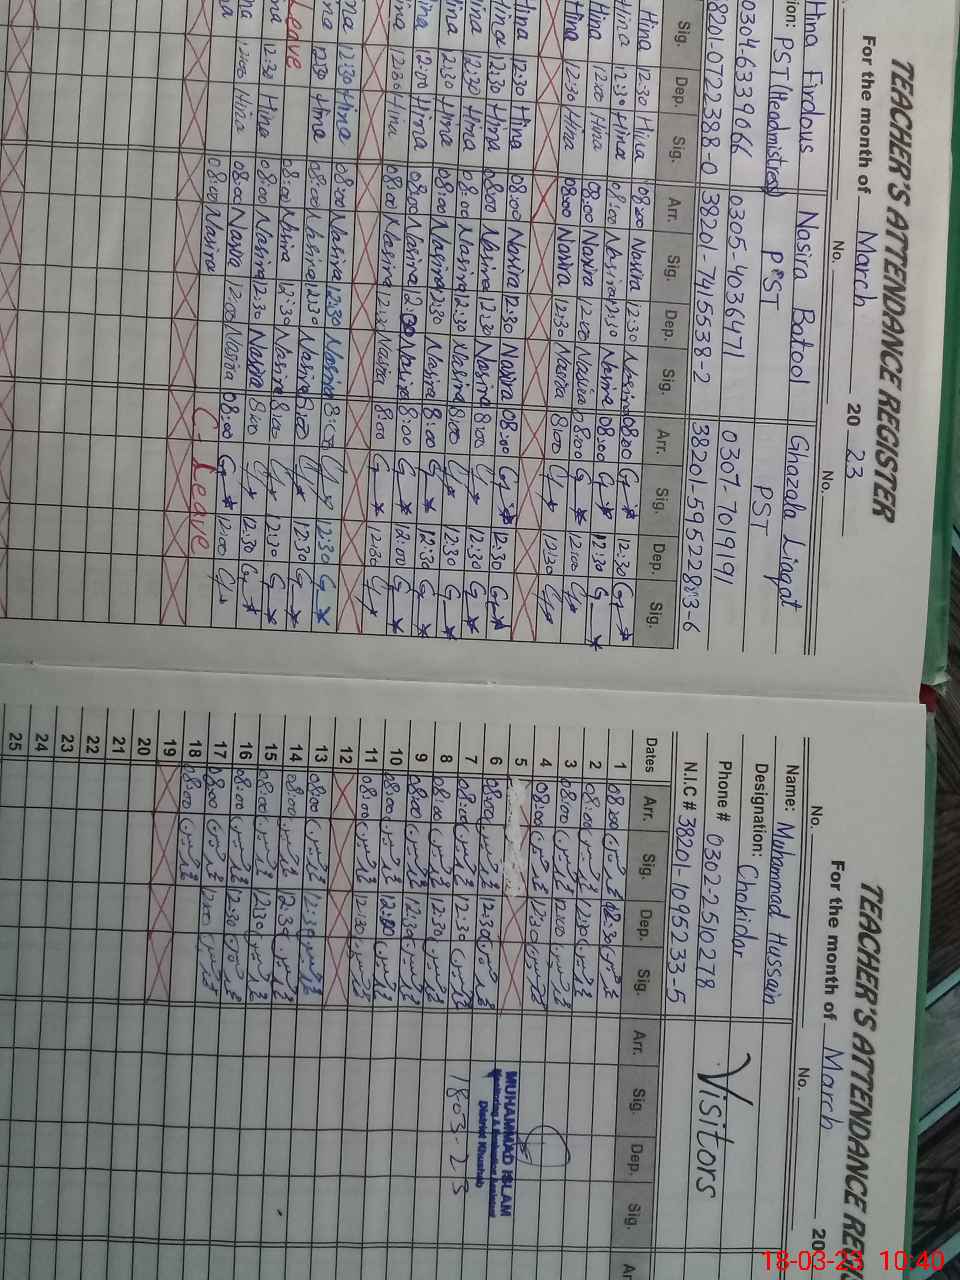 TEACHER'S ATTENDANCE REGISTER
For the month of March 2023
No. No.
Hina Firdous Nasira Batool Ghazala Liaqat
PST (Headmistress) PST PST
0304-6339066 0305-4036471 0307-7019191
38201-0722388-0 38201-7415538-2 38201-5952883-6
Sig. Dep. Sig. Arr. Sig. Dep. Sig. Arr. Sig. Dep. Sig.
Hina 12:30 Hina 08:00 Nasira 12:30 Nasira 08:00 G 12:30 G
Hina 12:30 Hina 08:00 Nasira 12:30 Nasira 08:00 G 12:30 G
Hina 12:00 Hina 08:00 Nasira 12:00 Nasira 08:00 G 12:00 G
Hina 12:30 Hina 08:00 Nasira 12:30 Nasira 8:00 G 12:30 G
Hina 12:30 Hina 08:00 Nasira 12:30 Nasira 08:00 G 12:30 G
Hina 12:30 Hina 08:00 Nasira 12:30 Nasira 8:00 G 12:30 G
Hina 12:30 Hina 08:00 Nasira 12:30 Nasira 8:00 G 12:30 G
Hina 12:30 Hina 08:00 Nasira 12:30 Nasira 8:00 G 12:30 G
Hina 12:00 Hina 08:00 Nasira 12:00 Nasira 8:00 G 12:00 G
Hina 12:30 Hina 08:00 Nasira 12:30 Nasira 8:00 G 12:30 G
Hina 12:30 Hina 08:00 Nasira 12:30 Nasira 8:00 G 12:30 G
12:30 Hina 08:00 Nasira 12:30 Nasira 8:00 G 12:30 G
Leave 08:00 Nasira 12:30 Nasira 8:00 G 12:30 G
12:30 Hina 08:00 Nasira 12:30 Nasira 8:00 G 12:30 G
12:00 Hina 08:00 Nasira 12:00 Nasira 08:00 G 12:00 G
08:00 Nasira C-Leave
TEACHER'S ATTENDANCE REG
For the month of March 20
No. No.
Name: Muhammad Hussain
Designation: Chokidar
Phone # 0302-2510278
N.I.C # 38201-1095233-5
Visitors
Dates Arr. Sig. Dep. Sig. Arr. Sig. Dep. Sig. Ar
1 08:00 12:30
2 08:00 12:30
3 08:00 12:00
4 08:00 12:30
5
6 08:00 12:30
7 08:00 12:30
8 08:00 12:30
9 08:00 12:30
10 08:00 12:00
11 08:00 12:30
12
13 08:00 12:30
14 08:00 12:30
15 08:00 12:30
16 08:00 12:30
17 08:00 12:00
18 08:00
19
20
21
22
23
24
25
MUHAMMAD ISLAM
Monitoring & Evaluation Assistant
District Khushab
18-03-23
18-03-23 10:40